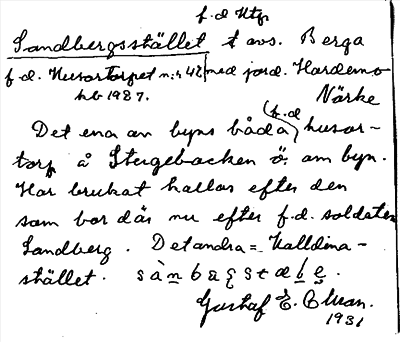 f.d. Utj.
Sandbergsstället t avs. Berga
f.d. Husartorpet n:r 42 med jord. Hardemo
hb 1987. Närke
Det ena av byns båda f.d. husar-
torp å Stugebacken ö. om byn.
Har brukat kallas efter den
som bor där nu efter f.d. soldaten
Sandberg. Det andra = Kalldina-
stället.
Gustaf E.
1931